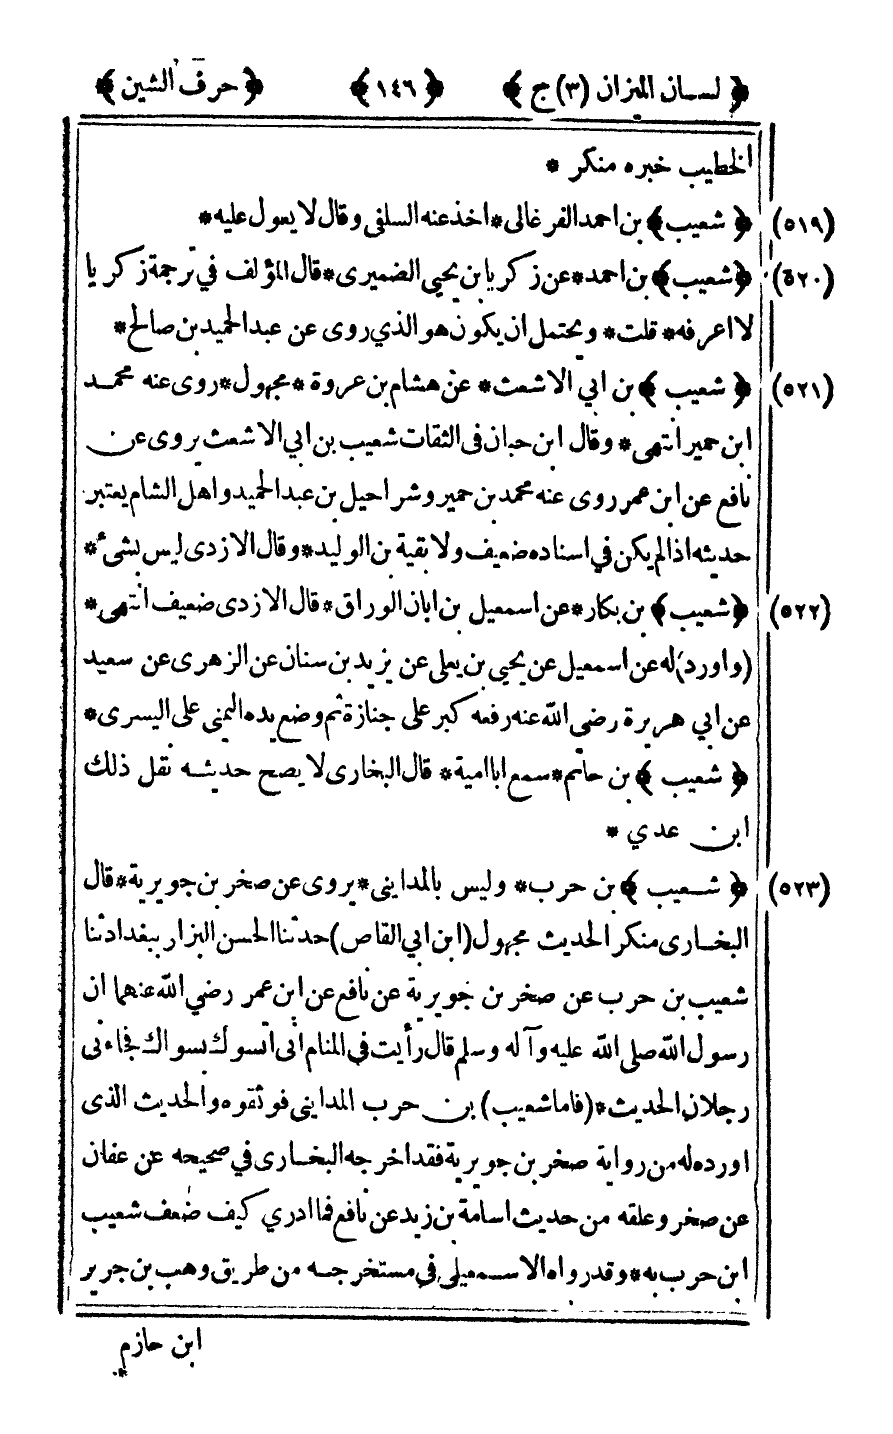 ﴿ لسان الميزان (٣) ج ﴾ ﴿ ١٤٦ ﴾ ﴿ حرف الشين ﴾
الخطيب خبره منكر *
(٥١٩) ﴿ شعيب ﴾ بن احمد الفرغالى * اخذ عنه السلفى وقال لا يعول عليه *
(٥٢٠) ﴿ شعيب ﴾ بن احمد * عن زكريا بن يحيى الضميرى * قال المؤلف في ترجمة زكريا
لا اعرفه * قلت * ويحتمل ان يكون هو الذي روى عن عبد الحميد بن صالح *
(٥٢١) ﴿ شعيب ﴾ بن ابي الاشعث * عن هشام بن عروة * مجهول * روى عنه محمد
ابن حمير انتهى * وقال ابن حبان فى الثقات شعيب بن ابي الاشعث يروى عن
نافع عن ابن عمر روى عنه محمد بن حمير وشراحيل بن عبد الحميد واهل الشام يعتبر
حديثه اذا لم يكن في اسناده ضعيف ولا بقية بن الوليد * وقال الازدى ليس بشىء *
(٥٢٢) ﴿ شعيب ﴾ بن بكار * عن اسمعيل بن ابان الوراق * قال الازدى ضعيف انتهى *
(واورد) له عن اسمعيل عن يحيى بن يعلى عن يزيد بن سنان عن الزهرى عن سعيد
عن ابي هريرة رضى الله عنه رفعه كبر على جنازة ثم وضع يده اليمنى على اليسرى *
﴿ شعيب ﴾ بن حاتم * سمع ابا امية * قال البخارى لا يصح حديثه نقل ذلك
ابن عدي *
(٥٢٣) ﴿ شعيب ﴾ بن حرب * وليس بالمدايني * يروى عن صخر بن جويرية * قال
البخارى منكر الحديث مجهول (ابن ابي القاص) حدثنا الحسن البزار ببغداد ثنا
شعيب بن حرب عن صخر بن جويرية عن نافع عن ابن عمر رضي الله عنهما ان
رسول الله صلى الله عليه وآله وسلم قال رأيت في المنام انى اتسوك بسواك فجاءنى
رجلان الحديث * (فاما شعيب) بن حرب المدايني فوثقوه والحديث الذى
اورده له من رواية صخر بن جويرية فقد اخرجه البخارى في صحيحه عن عفان
عن صخر وعلقه من حديث اسامة بن زيد عن نافع فما ادري كيف ضعف شعيب
ابن حرب به * وقد رواه الاسمعيلى في مستخرجه من طريق وهب بن جرير
ابن حازم